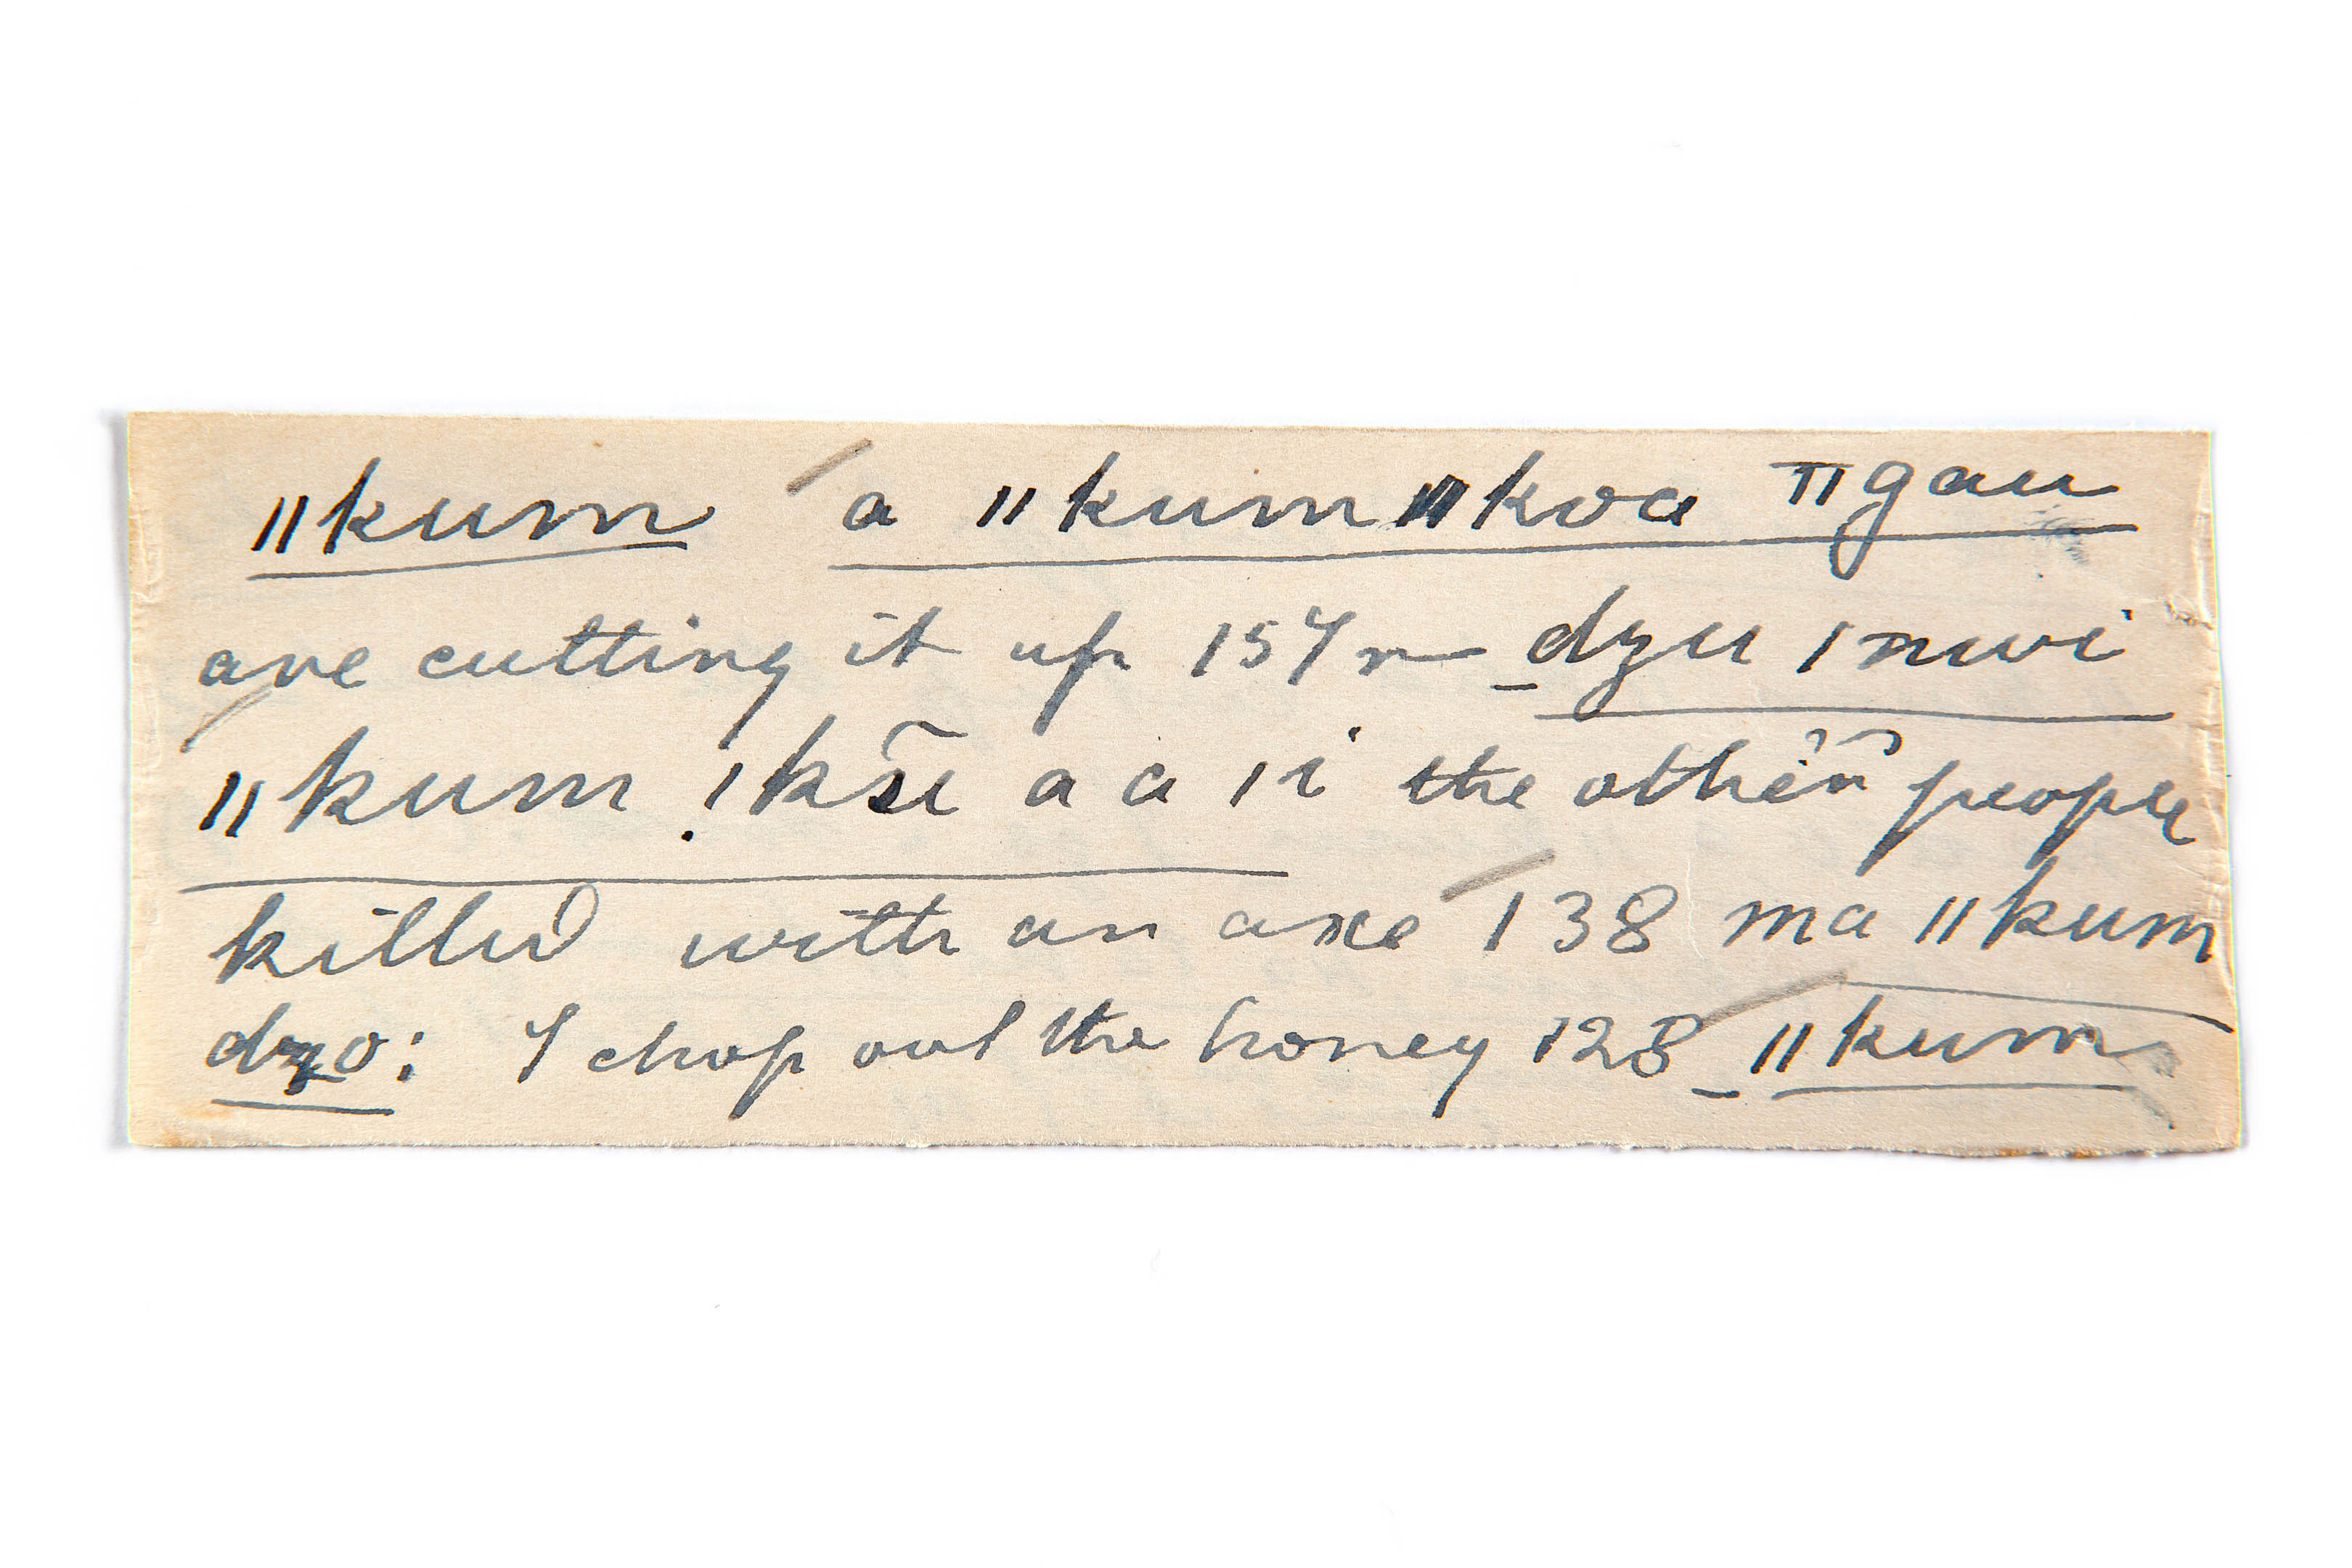 ǁkum a ǁkumǁkoa ǁgau
are cutting it up 157r dzu ǀnwi
ǁkum ǃkãi a a ǀi the other people
killed with an axe 138 ma ǁkum
dzo: I chop out the honey 128 ǁkum